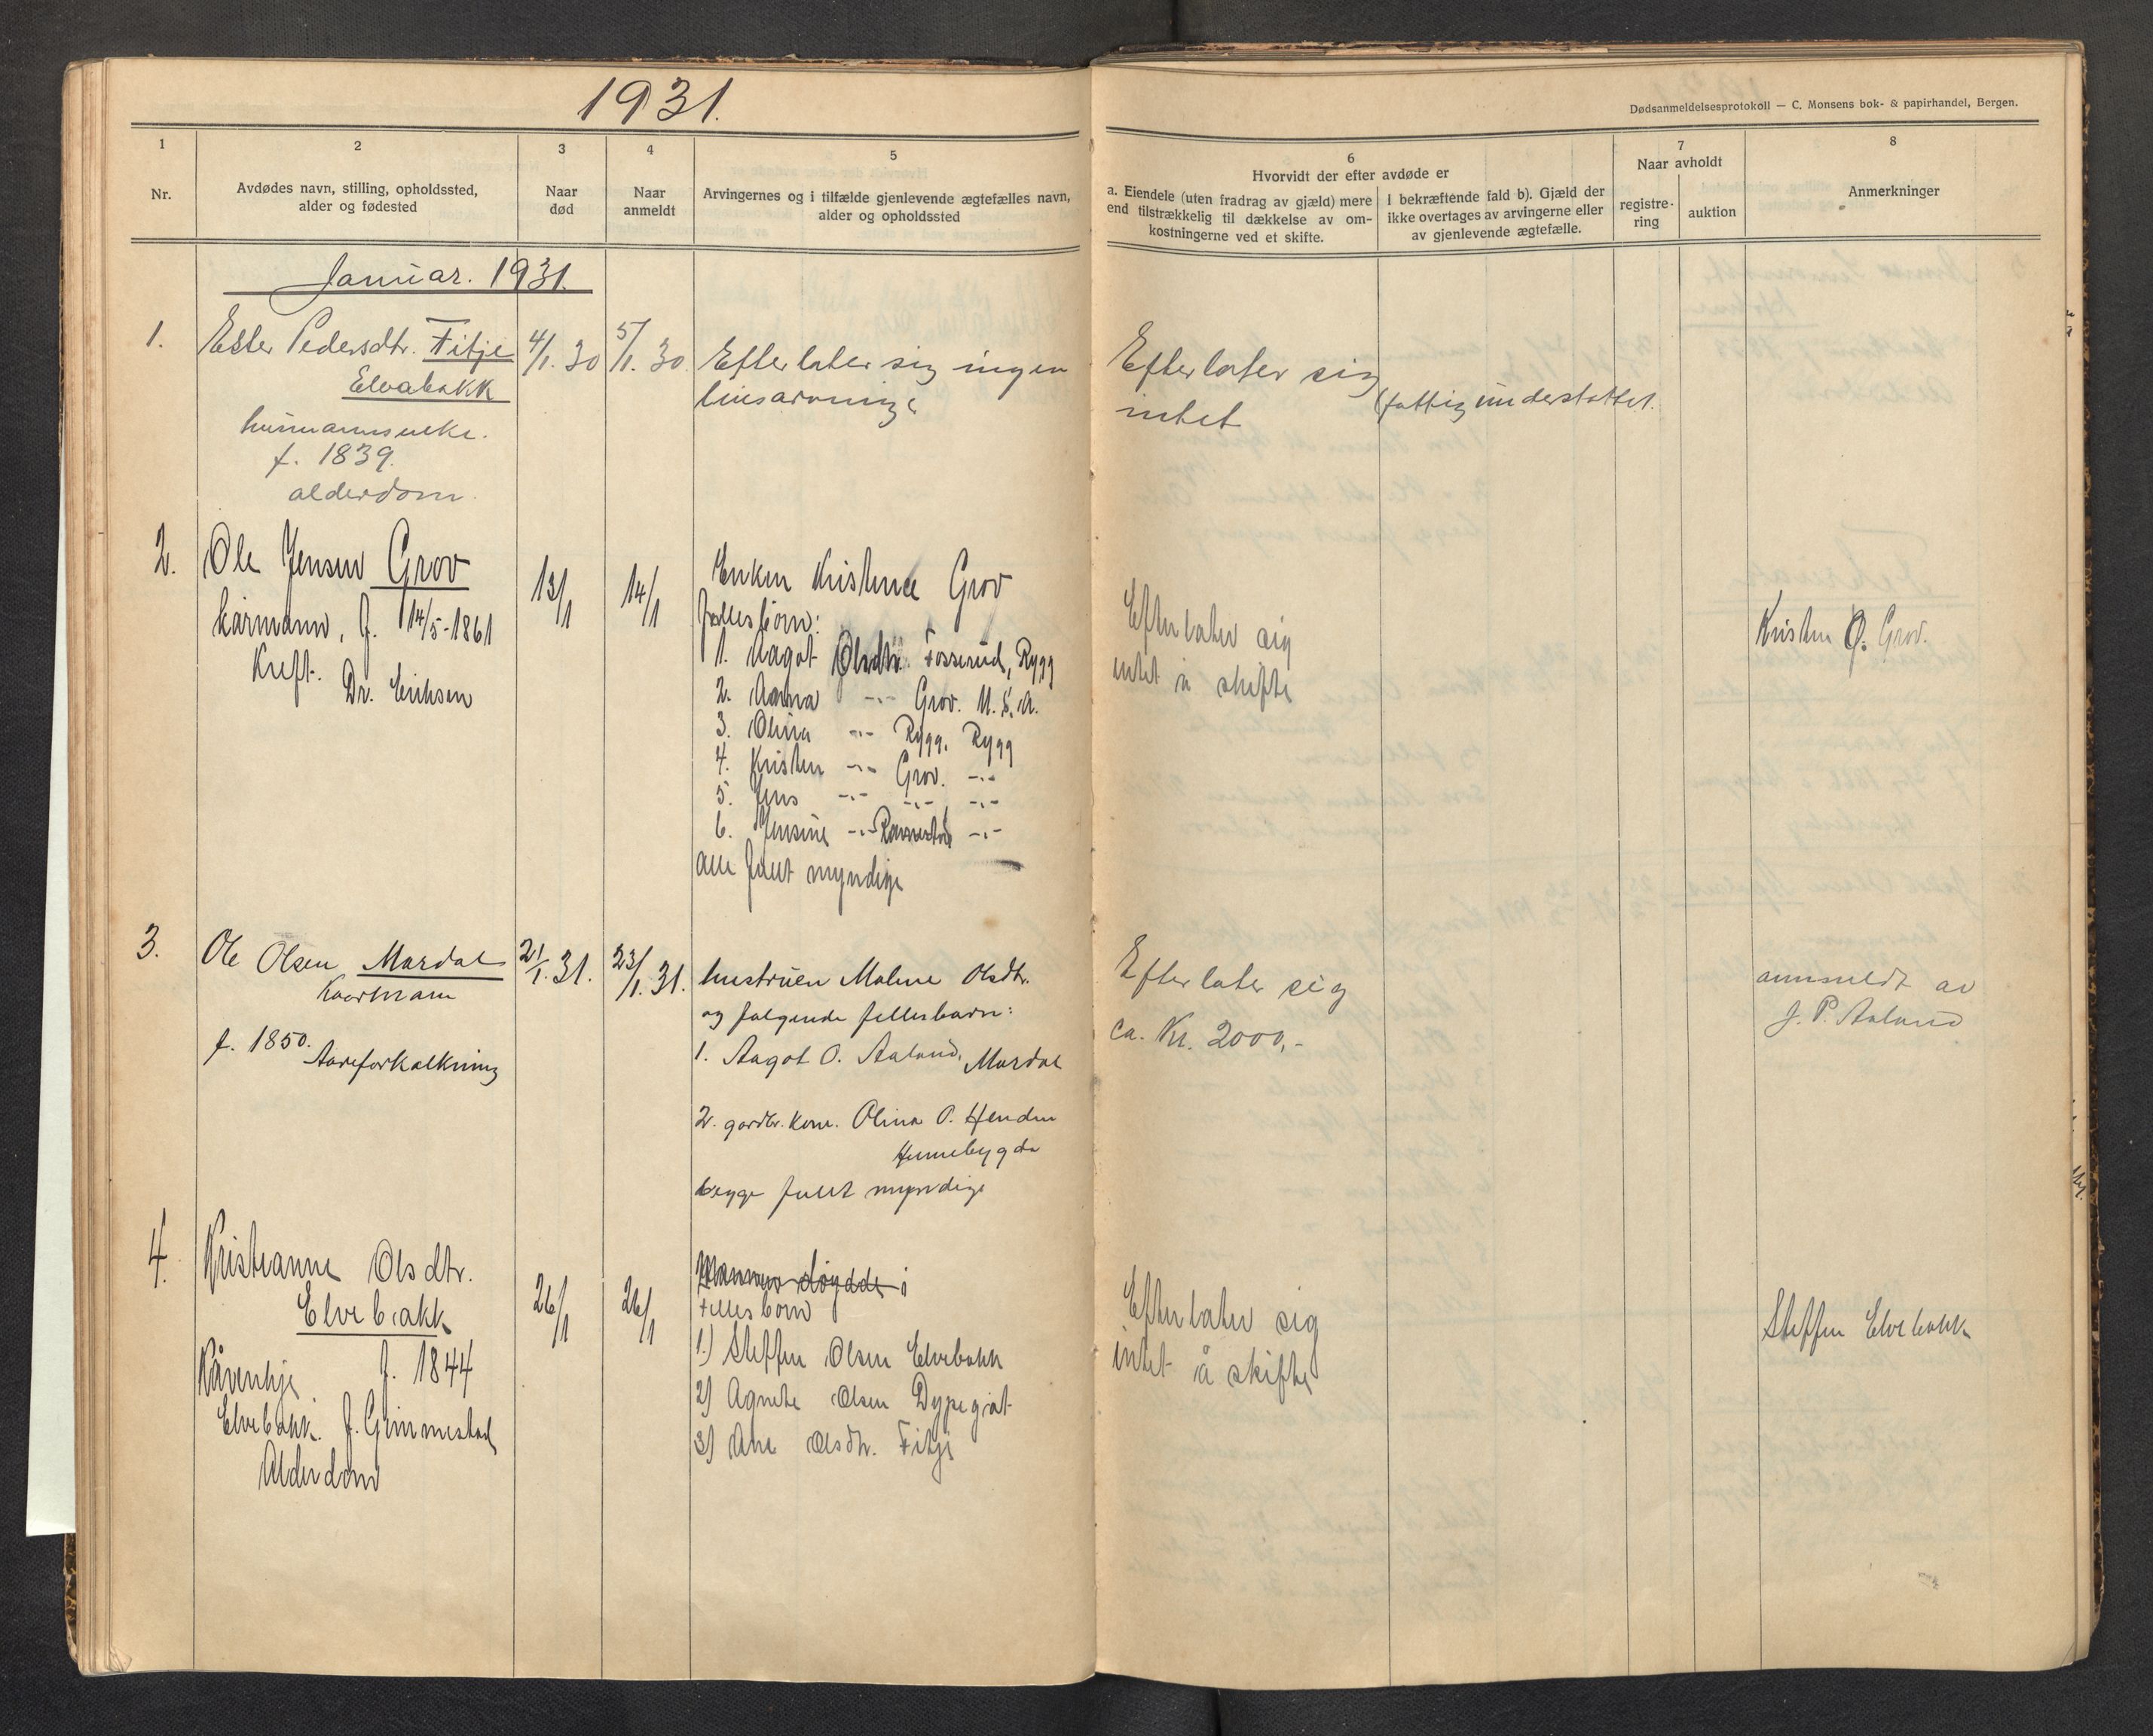 1931.
Dødsanmeldelsesprotokoll — C. Monsens bok- & papirhandel, Bergen.
1
2
3
4
5
6
7
8
Nr.
Avdødes navn, stilling, opholdssted,
alder og fødested
Naar
død
Naar
anmeldt
Arvingernes og i tilfælde gjenlevende ægtefælles navn,
alder og opholdssted
Hvorvidt der efter avdøde er
a. Eiendele (uten fradrag av gjæld) mere
end tilstrækkelig til dækkelse av om-
kostningerne ved et skifte.
I bekræftende fald b). Gjæld der
ikke overtages av arvingerne eller
av gjenlevende ægtefælle.
Naar avholdt
registre-
ring
auktion
Anmerkninger
Januar. 1931.
1.
Ester Pedersdtr. Fitje
Elvebakk
husmannsenke.
f. 1839.
alderdom.
4/1. 30
5/1. 30.
Efterlater sig ingen
livsarvinge
Efterlater sig
intet
(fattigunderstøttet.
2.
Ole Jensen Grov
kårmann, f. 14/5-1861
Kreft. Dr. Eriksen
13/1
14/1
Enken Kristence Grov
fellesborn:
1. Aagot Olsdtr. Fosserud, Rygg
2. Anna -"- Grov. U.S.A.
3. Olina -"- Rygg, Rygg
4. Kristen -"- Grov. -"-
5. Jens -"- -"- -"-
6. Jensine -"- Ramstad -"-
alle fullt myndige
Efterlater sig
intet å skifte
Kristen O. Grov.
3.
Ole Olsen Mardal
Kaarmann
f. 1850.
Aareforkalkning
21/1. 31.
23/1. 31.
hustruen Malene Olsdtr.
og følgende fellesbarn:
1. Aagot O. Aaland, Mardal
2. gardbr. kone. Olina O. Henden
Hennebygda
begge fullt myndige
Efterlater sig
ca. Kr. 2000,-
anmeldt av
J. P. Aaland
4.
Kristianne Olsdtr.
Elvebakk
Kårenkje f. 1844
Elvebakk. f. Gimmestad
Alderdom
26/1
26/1
Mannen døydde i
Fellesborn
1.) Steffen Olsen Elvebakk
2) Agnete Olsen Dypegot
3) Ane Olsdtr. Fitje
Efterlater sig
intet å skifte
Steffen Elvebakk